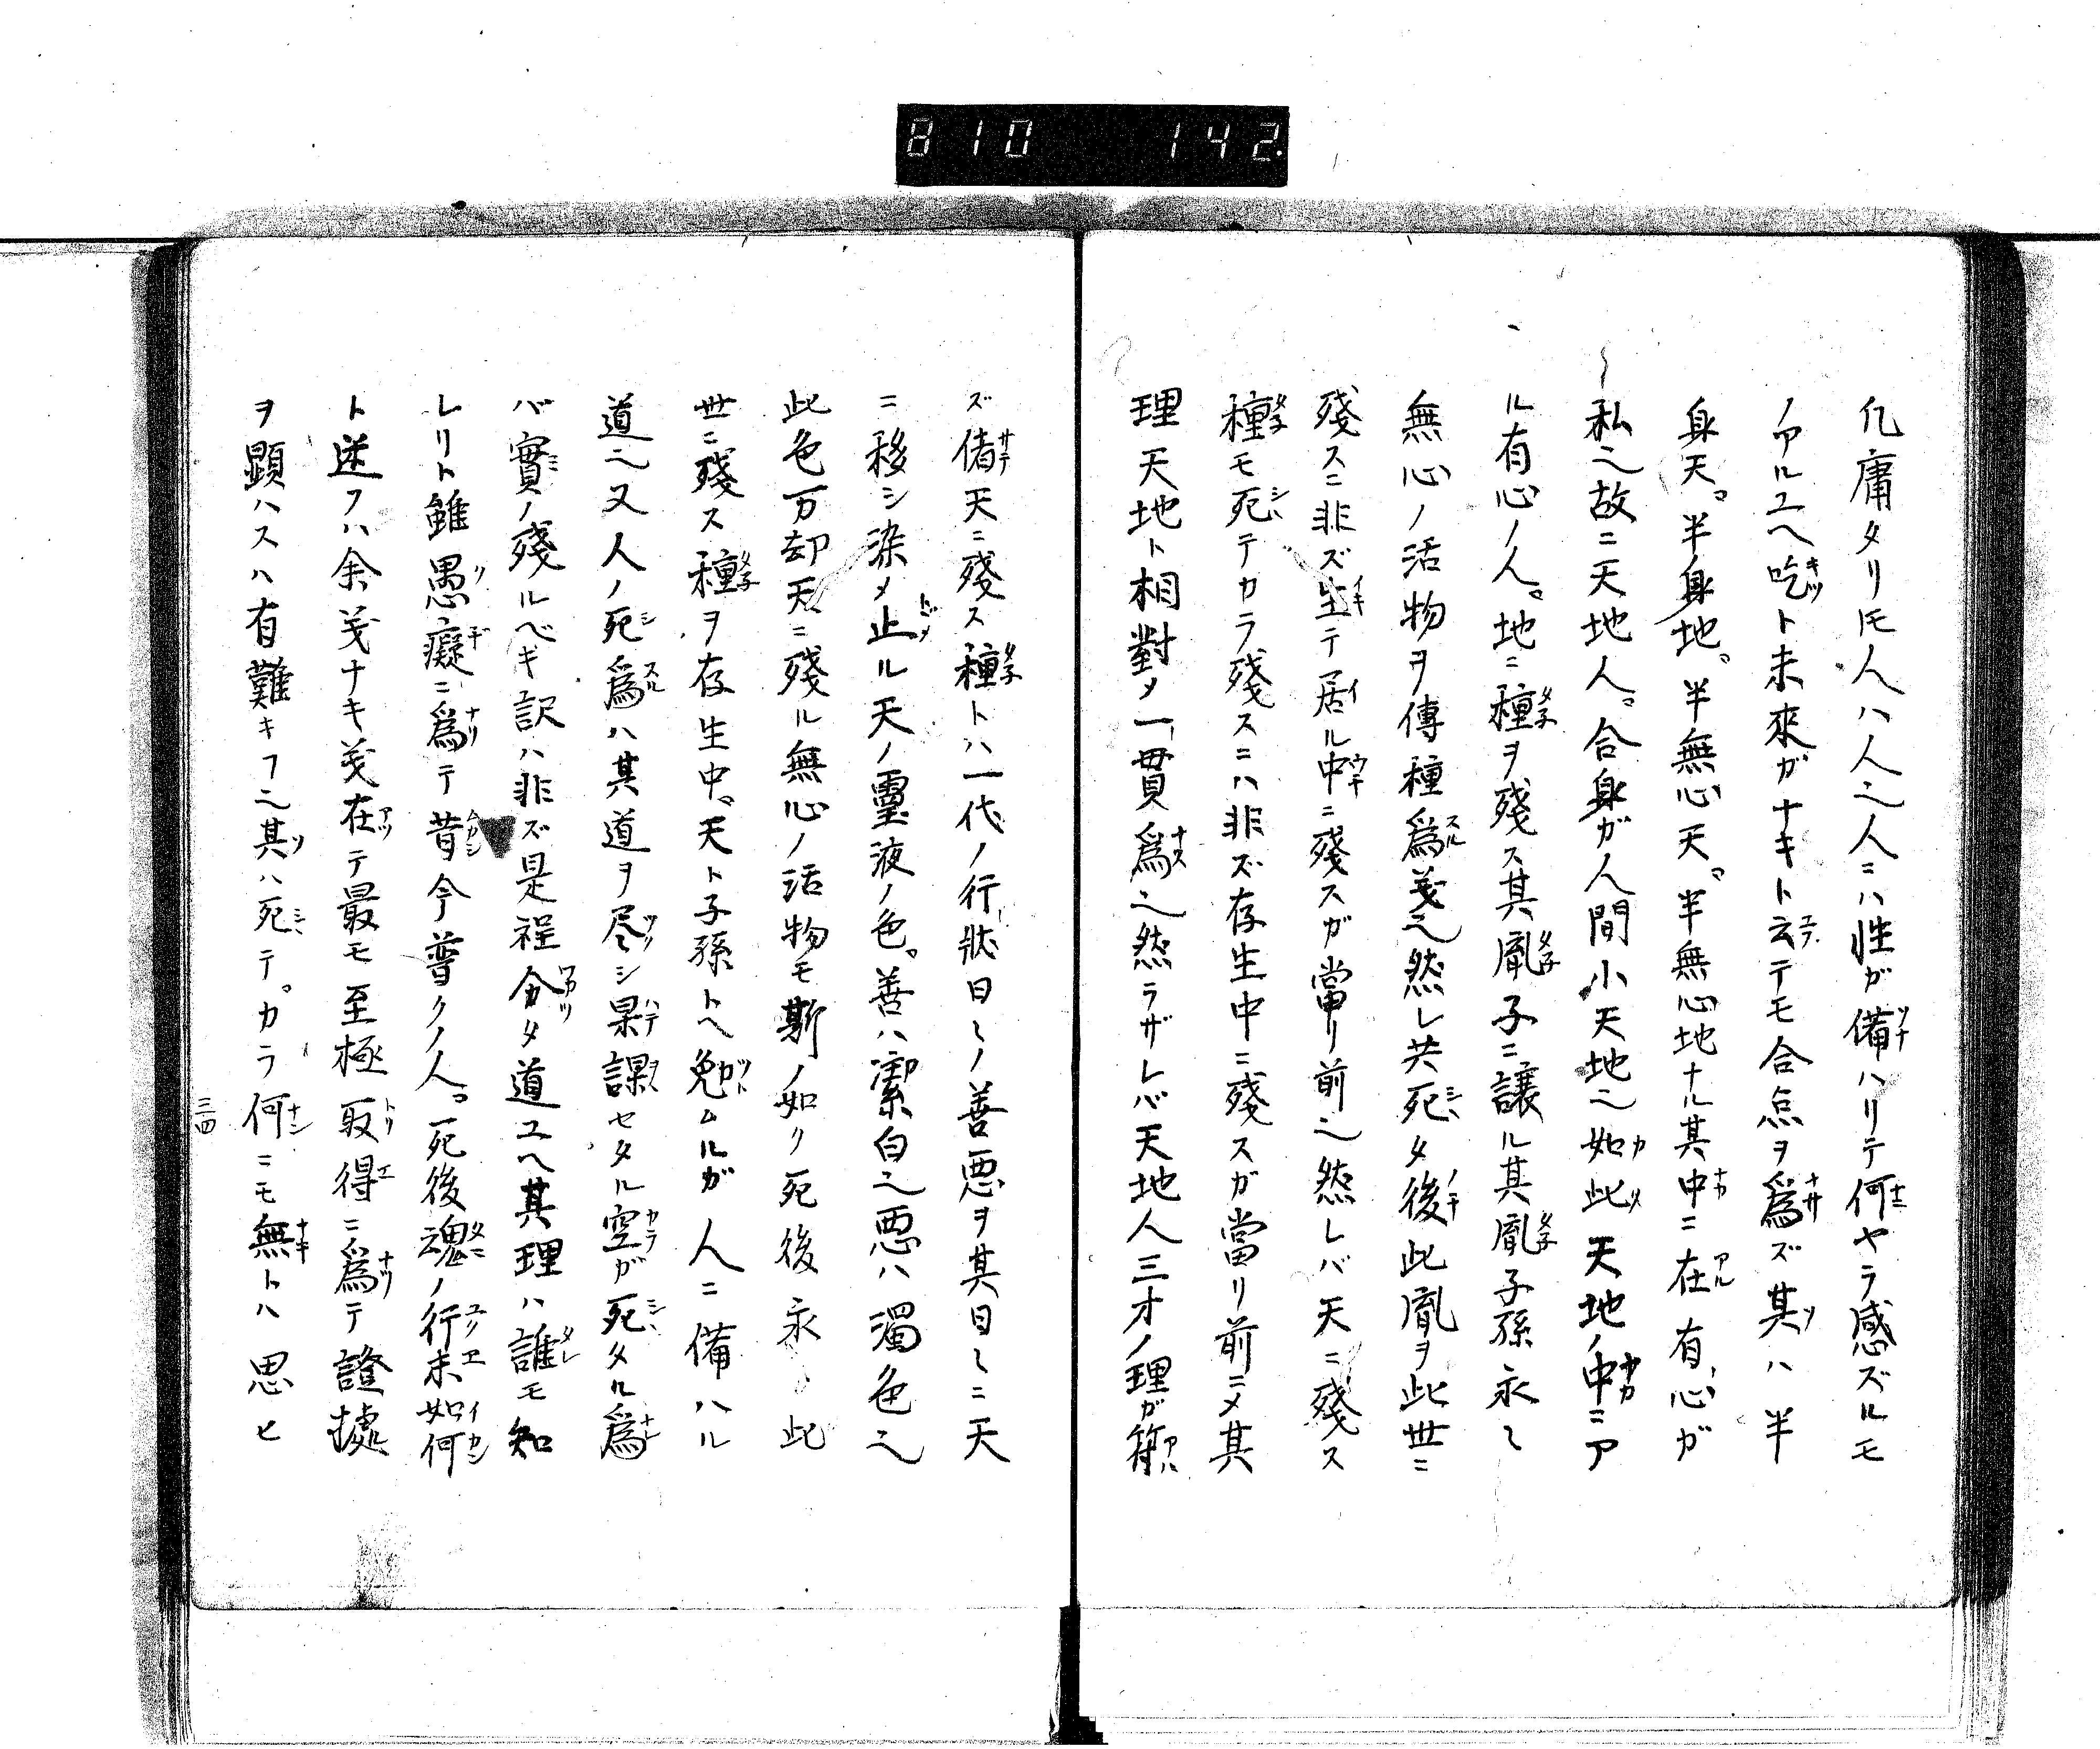 810 142.
凢庸タリ𪜈人ハ人也人ニハ性ガ備ハリテ何ヤラ感ズルモ
ノアルユヘ吃ト未來ガナキト云テモ合点ヲ爲ズ其ハ半
身天。半身地。半無心天。半無心地ナル其中ニ在有心ガ
私也故ニ天地人。合身ガ人間小天地也如此天地ノ中ニア
ル有心ノ人。地ニ種ヲ殘ス其胤子ニ讓ル其胤子孫永〻
無心ノ活物ヲ傳種爲義也然レ共死タ後此胤ヲ此世ニ
殘スニ非ズ生テ居ル中ニ殘スガ當リ前也然レバ天ニ殘ス
種モ死テカラ殘スニハ非ズ存生中ニ殘スガ當リ前ニ〆其
理天地ト相對〆一貫爲也然ラザレバ天地人三才ノ理ガ符
ズ偖天ニ殘ス種トハ一代ノ行狀日〻ノ善悪ヲ其日〻ニ天
ニ移シ染メ止ル天ノ靈液ノ色。善ハ潔白也悪ハ濁色也
此色万却天ニ殘ル無心ノ活物モ斯ノ如ク死後永〻此
世ニ殘ス種ヲ存生中。天ト子孫トヘ勉ムルガ人ニ備ハル
道也又人ノ死爲ハ其道ヲ尽シ果課セタル空ガ死タル爲
バ實ノ殘ルベキ訳ハ非ズ是程分タ道ユヘ其理ハ誰モ知
レリト雖愚癡ニ爲テ昔今普クノ人。死後魂ノ行末如何
ト迷フハ余義ナキ義在テ最モ至極取得ニ爲テ證據
ヲ顕ハスハ有難キヿ也其ハ死テカラ何ニモ無トハ思ヒ
三四